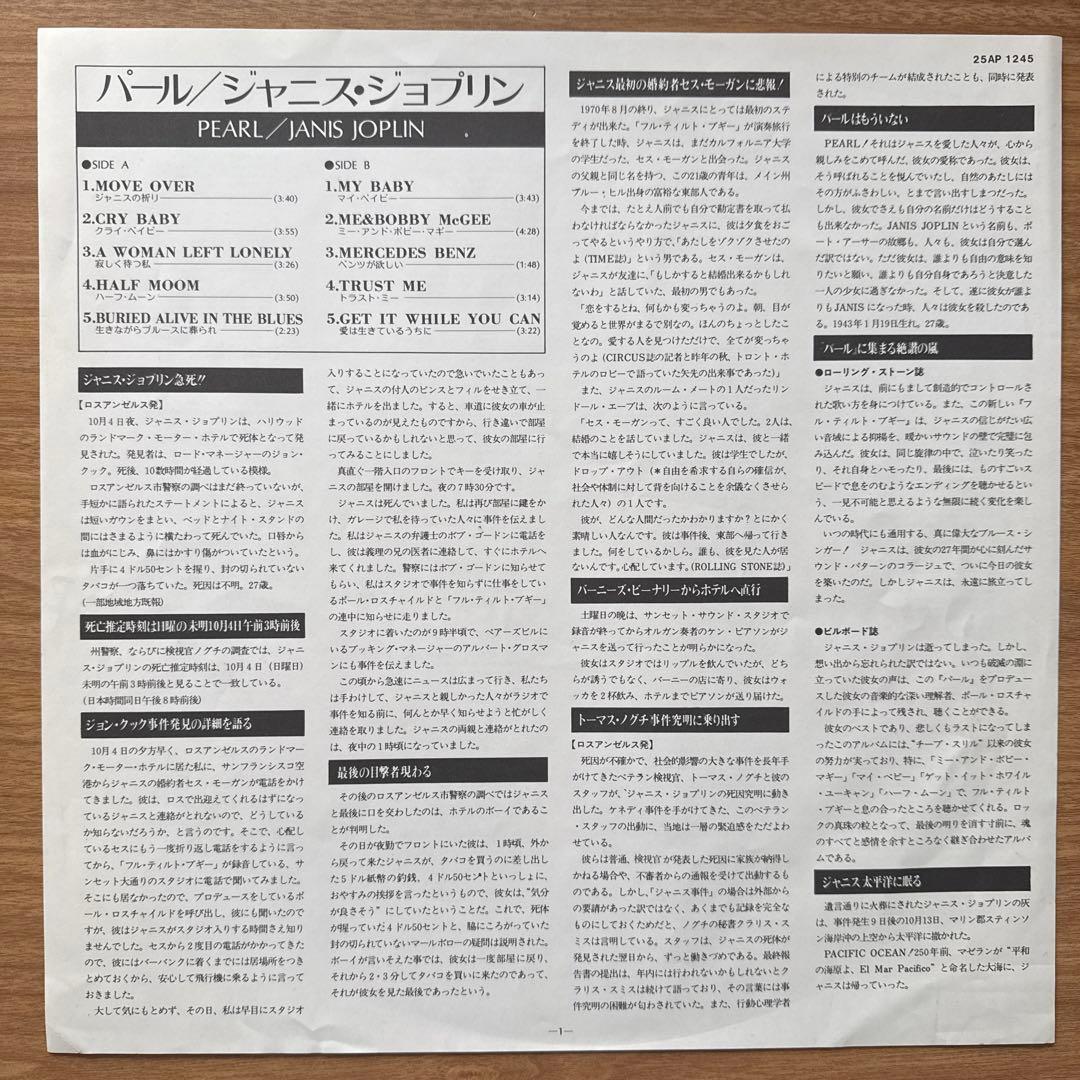 25AP 1245
パール/ジャニス・ジョプリン
PEARL/JANIS JOPLIN
●SIDE A
1.MOVE OVER
ジャニスの祈り (3:40)
2.CRY BABY
クライ・ベイビー (3:55)
3.A WOMAN LEFT LONELY
寂しく待つ私 (3:26)
4.HALF MOOM
ハーフ・ムーン (3:50)
5.BURIED ALIVE IN THE BLUES
生きながらブルースに葬られ (2:23)
●SIDE B
1.MY BABY
マイ・ベイビー (3:43)
2.ME&BOBBY McGEE
ミー・アンド・ボビー・マギー (4:28)
3.MERCEDES BENZ
ベンツが欲しい (1:48)
4.TRUST ME
トラスト・ミー (3:14)
5.GET IT WHILE YOU CAN
愛は生きているうちに (3:22)
ジャニス・ジョプリン急死!!
【ロスアンゼルス発】
10月4日夜、ジャニス・ジョプリンは、ハリウッド
のランドマーク・モーター・ホテルで死体となって発
見された。発見者は、ロード・マネージャーのジョン・
クック。死後、10数時間が経過している模様。
ロスアンゼルス市警察の調べはまだ終っていないが、
手短かに語られたステートメントによると、ジャニス
は短いガウンをまとい、ベッドとナイト・スタンドの
間にはさまるように横たわって死んでいた。口唇から
は血がにじみ、鼻にはかすり傷がついていたという。
片手に4ドル50セントを握り、封の切られていない
タバコが一つ落ちていた。死因は不明。27歳。
(一部地域地方既報)
死亡推定時刻は日曜の未明10月4日午前3時前後
州警察、ならびに検視官ノグチの調査では、ジャニ
ス・ジョプリンの死亡推定時刻は、10月4日(日曜日)
未明の午前3時前後と見ることで一致している。
(日本時間同日午後8時前後)
ジョン・クック事件発見の詳細を語る
10月4日の夕方早く、ロスアンゼルスのランドマー
ク・モーター・ホテルに居た私に、サンフランシスコ空
港からジャニスの婚約者セス・モーガンが電話をかけ
てきました。彼は、ロスで出迎えてくれるはずになっ
ているジャニスと連絡がとれないので、どうしている
か知らないだろうか、と言うのです。そこで、心配し
ているセスにもう一度折り返し電話をするように言っ
てから、「フル・ティルト・ブギー」が録音している、サ
ンセット大通りのスタジオに電話で聞いてみました。
そこにも居なかったので、プロデュースをしているポ
ール・ロスチャイルドを呼び出し、彼にも聞いたので
すが、彼はジャニスがスタジオ入りする時間さえ知り
ませんでした。セスから2度目の電話がかかってきた
ので、彼にはバーバンクに着くまでには居場所をつき
とめておくから、安心して飛行機に乗るように言って
おきました。
大して気にもとめず、その日、私は早目にスタジオ
入りすることになっていたので急いでいたこともあっ
て、ジャニスの付人のビンスとフィルをせき立て、一
緒にホテルを出ました。すると、車道に彼女の車が止
まっているのが見えたものですから、行き違いで部屋
に戻っているかもしれないと思って、彼女の部屋に行
ってみることにしました。
真直ぐ一階入口のフロントでキーを受け取り、ジャ
ニスの部屋を開けました。夜の7時30分です。
ジャニスは死んでいました。私は再び部屋に鍵をか
け、ガレージで私を待っていた人々に事件を伝えまし
た。私はジャニスの弁護士のボブ・ゴードンに電話を
し、彼は義理の兄の医者に連絡して、すぐにホテルへ
来てくれました。警察にはボブ・ゴードンに知らせて
もらい、私はスタジオで事件を知らずに仕事をしてい
るポール・ロスチャイルドと「フル・ティルト・ブギー」
の連中に知らせに走りました。
スタジオに着いたのが9時半頃で、ベアーズビルに
いるブッキング・マネージャーのアルバート・グロスマ
ンにも事件を伝えました。
この頃から急速にニュースは広まって行き、私たち
は手わけして、ジャニスと親しかった人々がラジオで
事件を知る前に、何んとか早く知らせようと忙がしく
連絡を取りました。ジャニスの両親と連絡がとれたの
は、夜中の1時頃になっていました。
最後の目撃者現わる
その後のロスアンゼルス市警察の調べではジャニス
と最後に口を交わしたのは、ホテルのボーイであるこ
とが判明した。
その日が夜勤でフロントにいた彼は、1時頃、外か
ら戻って来たジャニスが、タバコを買うのに差し出し
た5ドル紙幣の釣銭、4ドル50セントといっしょに、
おやすみの挨拶を言ったというもので、彼女は、“気分
が良さそう”にしていたということだ。これで、死体
が握っていた4ドル50セントと、脇にころがっていた
封の切られていないマールボローの疑問は説明された。
ボーイが言いそえた事では、彼女は一度部屋に戻り、
それから2・3分してタバコを買いに来たのであって、
それが彼女を見た最後であったという。
ジャニス最初の婚約者セス・モーガンに悲報!
1970年8月の終り、ジャニスにとっては最初のステ
ディが出来た。「フル・ティルト・ブギー」が演奏旅行
を終了した時、ジャニスは、まだカルフォルニア大学
の学生だった、セス・モーガンと出会った。ジャニス
の父親と同じ名を持つ、この21歳の青年は、メイン州
ブルー・ヒル出身の富裕な東部人である。
今までは、たとえ人前でも自分で勘定書を取って払
わなければならなかったジャニスに、彼は夕食をおご
ってやるというやり方で、「あたしをゾクゾクさせたの
よ(TIME誌)」という男である。セス・モーガンは、
ジャニスが友達に、「もしかすると結婚出来るかもしれ
ないわ」と話していた、最初の男でもあった。
「恋をするとね、何もかも変っちゃうのよ。朝、目が
覚めると世界がまるで別なの。ほんのちょっとしたこ
となの。愛する人を見つけただけで、全てが変っちゃ
うのよ(CIRCUS誌の記者と昨年の秋、トロント・ホ
テルのロビーで語っていた矢先の出来事であった)」
また、ジャニスのルーム・メートの1人だったリン
ドール・エーブは、次のように言っている。
「セス・モーガンって、すごく良い人でした。2人は、
結婚のことを話していました。ジャニスは、彼と一緒
で本当に嬉しそうにしていました。彼は学生でしたが、
ドロップ・アウト(＊自由を希求する自らの確信が、
社会や体制に対して背を向けることを余儀なくさせら
れた人々)の1人です。
彼が、どんな人間だったかわかりますか?とにかく
素晴しい人なんです。彼は事件後、東部へ帰って行き
ました。何をしているかしら。誰も、彼を見た人が居
ないんです。心配しています。(ROLLING STONE誌)」
バーニーズ・ビーナリーからホテルへ直行
土曜日の晩は、サンセット・サウンド・スタジオで
録音が終ってからオルガン奏者のケン・ピアソンがジ
ャニスを送って行ったことが明らかになった。
彼女はスタジオではリップルを飲んでいたが、どち
らが誘うでもなく、バーニーの店に寄り、彼女はウォ
ッカを2杯飲み、ホテルまでピアソンが送り届けた。
トーマス・ノグチ事件究明に乗り出す
【ロスアンゼルス発】
死因が不確かで、社会的影響の大きな事件を長年手
がけてきたベテラン検視官、トーマス・ノグチと彼の
スタッフが、ジャニス・ジョプリンの死因究明に動き
出した。ケネディ事件を手がけてきた、このベテラン・
スタッフの出動に、当地は一層の緊迫感をただよわ
せている。
彼らは普通、検視官が発表した死因に家族が納得し
かねる場合や、不審者からの通報を受けて出動するも
のである。しかし、「ジャニス事件」の場合は外部から
の要請があった訳ではなく、あくまでも記録を完全な
ものにしておくためだと、ノグチの秘書クラリス・ス
ミスは言明している。スタッフは、ジャニスの死体が
発見された翌日から、ずっと働きづめである。最終報
告書の提出は、年内には行われないかもしれないとク
ラリス・スミスは続けて語っており、その言葉には事
件究明の困難が匂わされていた。また、行動心理学者
による特別のチームが結成されたことも、同時に発表
された。
パールはもういない
PEARL!それはジャニスを愛した人々が、心から
親しみをこめて呼んだ、彼女の愛称であった。彼女は、
そう呼ばれることを悦んでいたし、自然のあたしには
その方がふさわしい、とまで言い出しまつだった。
しかし、彼女でさえも自分の名前だけはどうすること
も出来なかった。JANIS JOPLINという名前も、ポ
ート・アーサーの故郷も、人々も、彼女は自分で選ん
だ訳ではない。ただ彼女は、誰よりも自由の意味を知
りたいと願い、誰よりも自分自身であろうと決意した
一人の少女に過ぎなかった。そして、遂に彼女が誰よ
りもJANISになった時、人々は彼女を殺したのであ
る。1943年1月19日生れ。27歳。
「パール」に集まる絶讃の嵐
●ローリング・ストーン誌
ジャニスは、前にもまして創造的でコントロールさ
れた歌い方を身につけている。また、この新しい「フ
ル・ティルト・ブギー」は、ジャニスの信じがたい広
い音域による抑揚を、暖かいサウンドの壁で完璧に包
みこんだ。彼女は、同じ旋律の中で、泣いたり笑った
り、それ自身とハモったり、最後には、ものすごいス
ピードで息をのむようなエンディングを聴かせるとい
う、一見不可能と思えるような無限に続く変化を楽し
んでいる。
いつの時代にも通用する、真に偉大なブルース・シ
ンガー! ジャニスは、彼女の27年間が心に刻んだサ
ウンド・パターンのコラージュで、ついに今日の彼女
を築いたのだ。しかしジャニスは、永遠に旅立ってし
まった。
●ビルボード誌
ジャニス・ジョプリンは逝ってしまった。しかし、
想い出から忘れられた訳ではない。いつも破滅の淵に
立っていた彼女の声は、この「パール」をプロデュー
スした彼女の音楽的な深い理解者、ポール・ロスチャ
イルドの手によって残され、聴くことができる。
彼女のベストであり、悲しくもラストになってしま
ったこのアルバムには、“チープ・スリル”以来の彼女
の努力が実っており、特に、「ミー・アンド・ボビー・
マギー」「マイ・ベビー」「ゲット・イット・ホワイル
・ユーキャン」「ハーフ・ムーン」で、フル・ティルト・
ブギーと息の合ったところを聴かせてくれる。ロック
の真珠の粒となって、最後の明りを消す寸前に、魂
のすべてと感情を余すところなく継ぎ合わせたアルバ
ムである。
ジャニス太平洋に眠る
遺言通りに火葬にされたジャニス・ジョプリンの灰
は、事件発生9日後の10月13日、マリン郡スティンソ
ン海岸沖の上空から太平洋に撒かれた。
PACIFIC OCEAN/250年前、マゼランが“平和
の海原よ、El Mar Pacifico”と命名した大海に、ジ
ャニスは帰っていった。
—1—